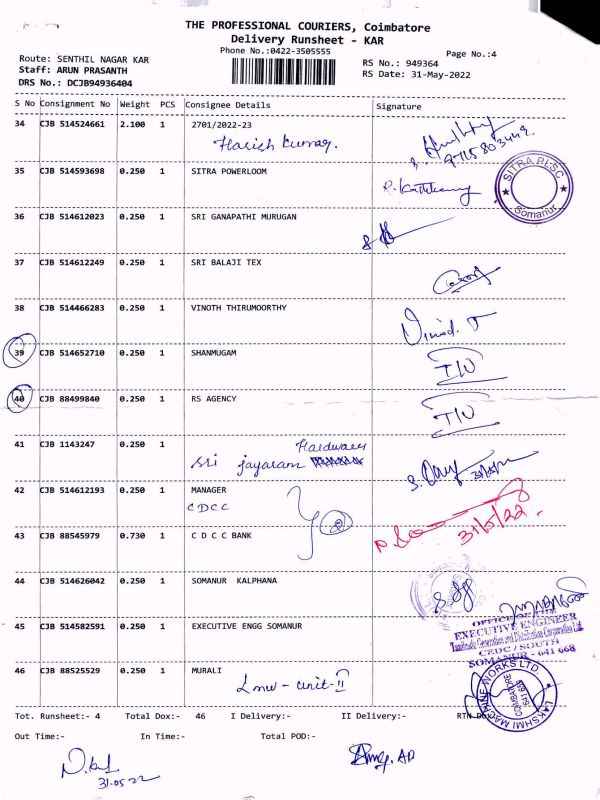 THE PROFESSIONAL COURIERS, Coimbatore
Delivery Runsheet - KAR
Phone No.:0422-3505555
Page No.:4
Route: SENTHIL NAGAR KAR
RS No.: 949364
Staff: ARUN PRASANTH
RS Date: 31-May-2022
DRS No.: DCJB94936404
S No Consignment No Weight PCS Consignee Details Signature
34 CJB 514524661 2.100 1 2701/2022-23
Harish Kumar.
35 CJB 514593698 0.250 1 SITRA POWERLOOM
SITRA PLSC
Somanur
36 CJB 514612023 0.250 1 SRI GANAPATHI MURUGAN
37 CJB 514612249 0.250 1 SRI BALAJI TEX
38 CJB 514466283 0.250 1 VINOTH THIRUMOORTHY
Vinod. T
39 CJB 514652710 0.250 1 SHANMUGAM
40 CJB 88499840 0.250 1 RS AGENCY
41 CJB 1143247 0.250 1
Hardwares
Sri jayaram
42 CJB 514612193 0.250 1 MANAGER
CDCC
2
43 CJB 88545979 0.730 1 C D C C BANK
31/5/22.
44 CJB 514626042 0.250 1 SOMANUR KALPHANA
OFFICE OF THE
45 CJB 514582591 0.250 1 EXECUTIVE ENGG SOMANUR
EXECUTIVE ENGINEER
CEDC / SOUTH
SOMANUR - 641 668
46 CJB 88525529 0.250 1 MURALI
Lmw - unit - II
LAKSHMI MACHINE WORKS LTD.
COIMBATORE
Tot. Runsheet:- 4 Total Dox:- 46 I Delivery:- II Delivery:- RTN Dox
Out Time:- In Time:- Total POD:-
31.05.22